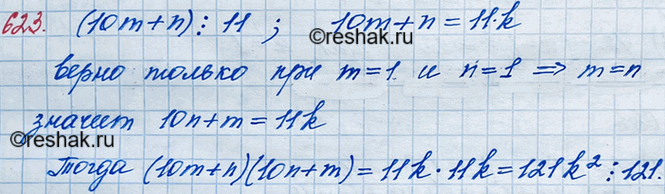 623. (10m+n)⋮11 ; 10m+n=11·k
©reshak.ru
верно только при m=1 и n=1 ⇒ m=n
©reshak.ru
значит 10n+m=11k
Тогда (10m+n)(10n+m)=11k·11k=121k²⋮121.